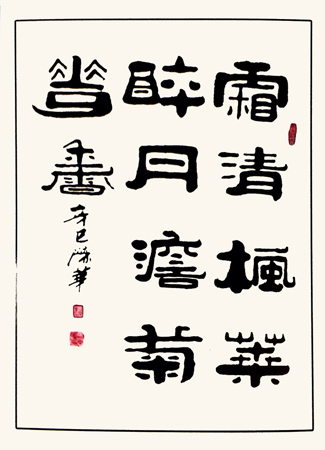 霜清楓葉
醉月澹菊
花香
辛巳 華